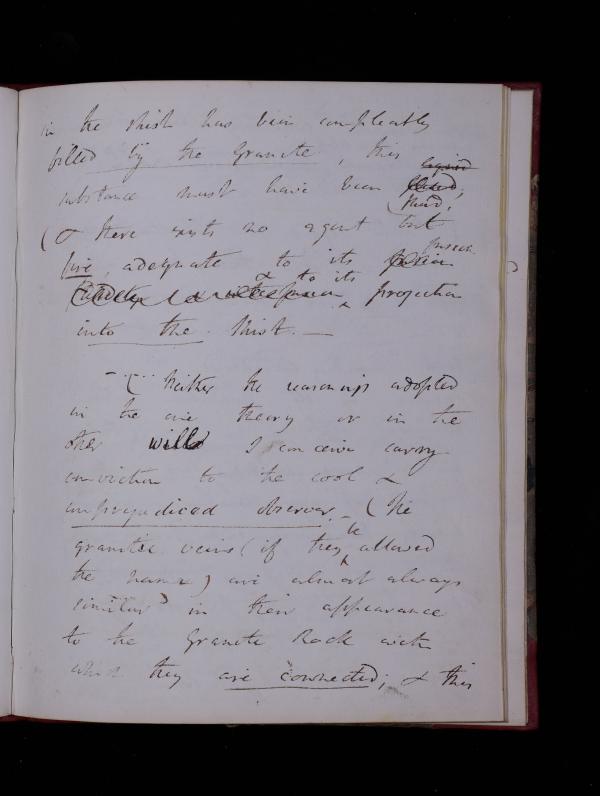 in the shist has been compleatly
filled by the Granite, this
liquid
substance must have been fused,
fluid;
( & there exists no agent but
fusion
fire, adequate to its fusion
& to its
projection
into the shist. —
( Neither the reasonings adopted
in the one theory or in the
other will I conceive carry
conviction to the cool &
unprejudiced observer. – ( The
be
granitic veins (if they allowed
the name) are almost always
similar in their appearance
to the Granite Rock with
which they are connected; & this